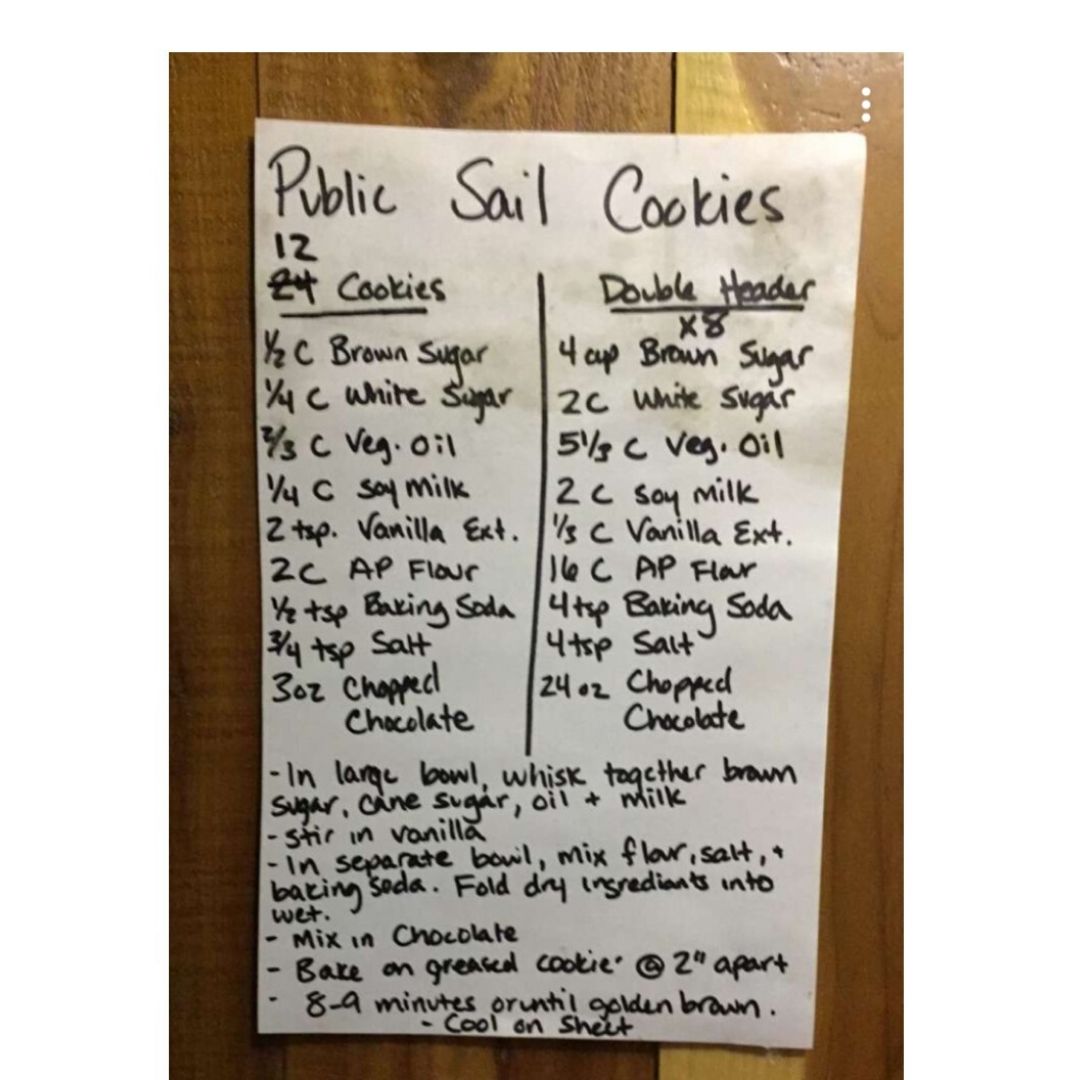 Public Sail Cookies
12
24 Cookies
½ C Brown Sugar
¼ C White Sugar
⅔ C Veg. Oil
¼ C Soy Milk
2 tsp. Vanilla Ext.
2 C AP Flour
½ tsp Baking Soda
¾ tsp Salt
3oz Chopped
Chocolate
Double Header
x8
4 cup Brown Sugar
2 C White Sugar
5⅓ C Veg. Oil
2 C Soy Milk
⅓ C Vanilla Ext.
16 C AP Flour
4 tsp Baking Soda
4 tsp Salt
24 oz Chopped
Chocolate
- In large bowl, whisk together brown
sugar, cane sugar, oil + milk
- Stir in vanilla
- In separate bowl, mix flour, salt, +
baking soda. Fold dry ingrediants into
wet.
- Mix in Chocolate
- Bake on greased cookie @ 2" apart
- 8-9 minutes or until golden brown.
- Cool on Sheet